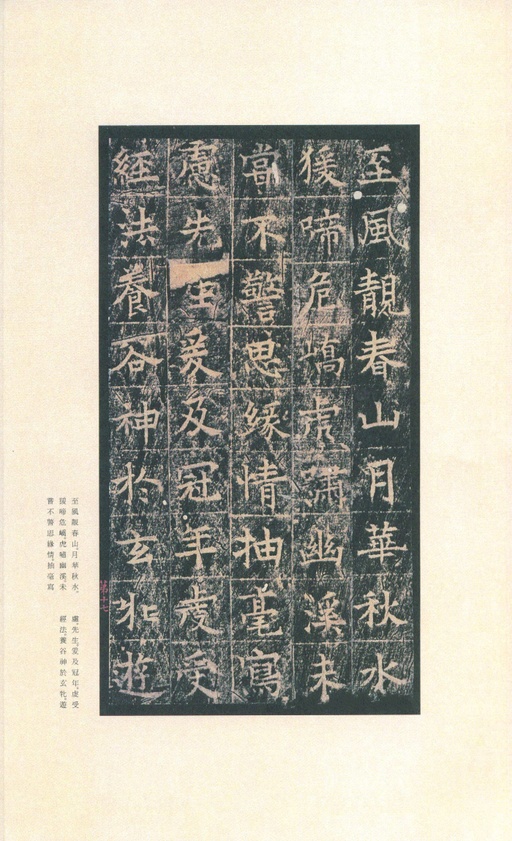 至風靚春山月華秋水
猨啼危嶠虎嘯幽溪未
嘗不警思緣情抽毫寫
慮先生爰及冠年虔受
經法養谷神於玄牝遊
第十七
至風靚春山，月華秋水，
猨啼危嶠，虎嘯幽溪，未
嘗不警思緣情，抽毫寫
慮。先生，爰及冠年，虔受
經法，養谷神於玄牝，遊